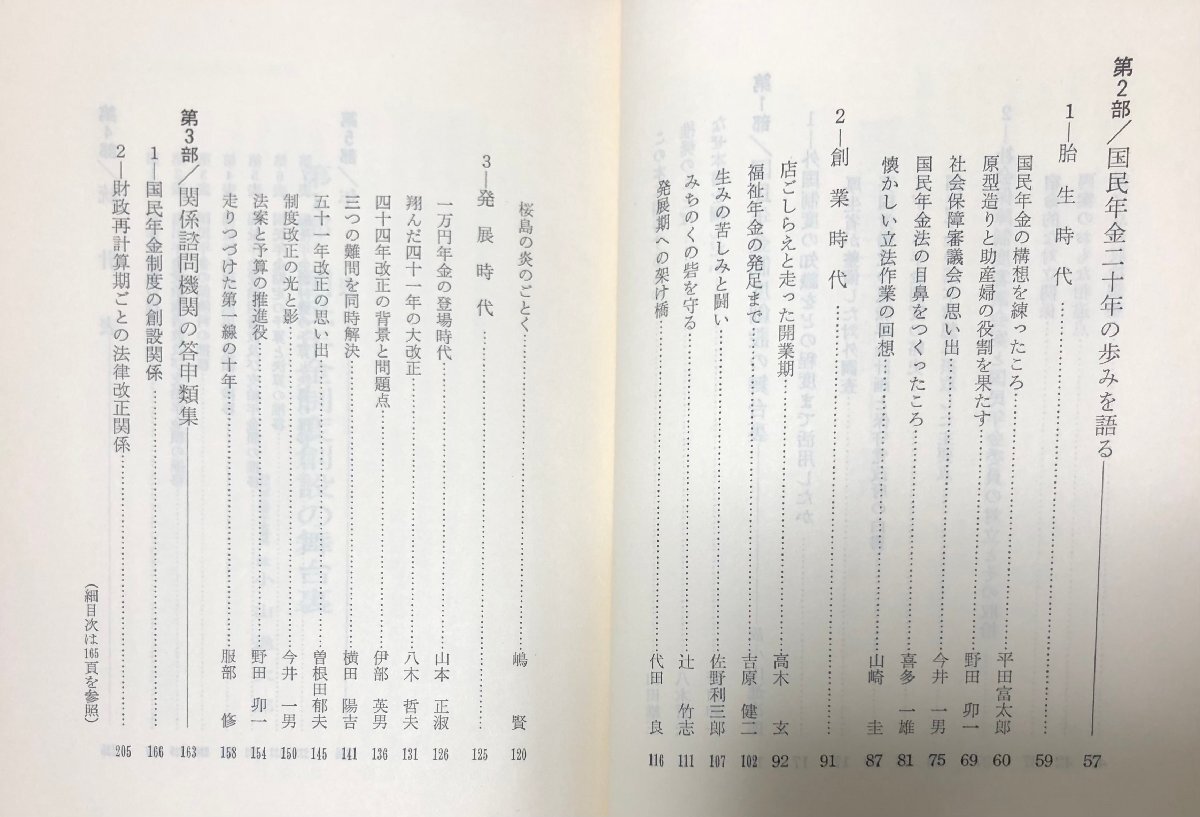 第2部／国民年金二十年の歩みを語る 57
1—胎生時代 59
国民年金の構想を練ったころ 平田富太郎 60
原型造りと助産婦の役割を果たす 野田卯一 69
社会保障審議会の思い出 今井一男 75
国民年金法の目鼻をつくったころ 喜多一雄 81
懐かしい立法作業の回想 山崎圭 87
2—創業時代 91
店ごしらえと走った開業期 高木玄 92
福祉年金の発足まで 吉原健二 102
生みの苦しみと闘い 佐野利三郎 107
みちのくの砦を守る 辻竹志 111
発展期への架け橋 代田良 116
桜島の炎のごとく 嶋賢 120
3—発展時代 125
一万円年金の登場時代 山本正淑 126
翔んだ四十一年の大改正 八木哲夫 131
四十四年改正の背景と問題点 伊部英男 136
三つの難問を同時解決 横田陽吉 141
五十一年改正の思い出 曽根田郁夫 145
制度改正の光と影 今井一男 150
法案と予算の推進役 野田卯一 154
走りつづけた第一線の十年 服部修 158
第3部／関係諮問機関の答申類集 163
1—国民年金制度の創設関係 166
2—財政再計算期ごとの法律改正関係 205
（細目次は165頁を参照）